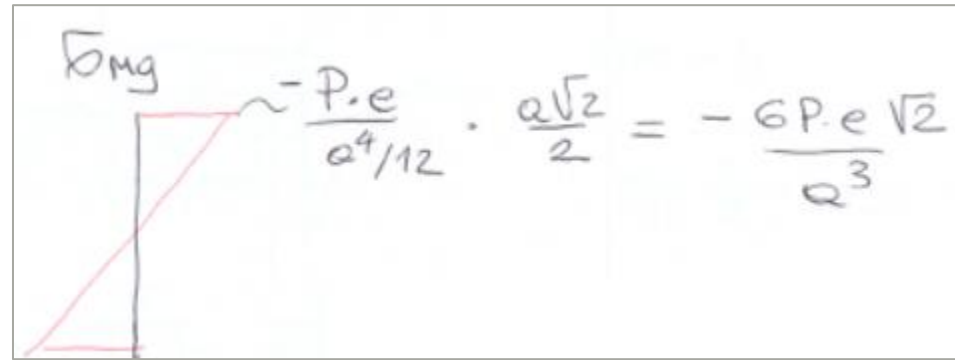 σMd
-P.e/a⁴/12 · a√2/2 = - 6P.e √2/a³